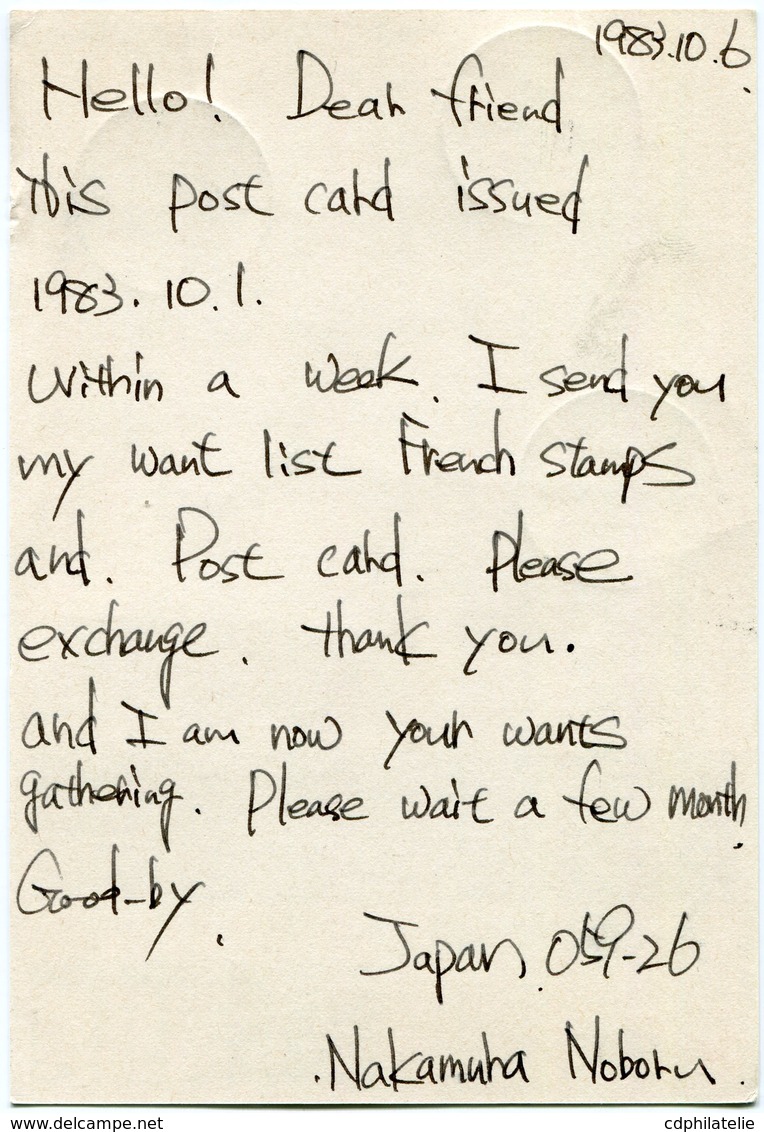 1983.10.6.
Hello! Dear friend
this post card issued
1983. 10. 1.
Within a week. I send you
my want list French stamps
and. Post card. Please
exchange. thank you.
and I am now your wants
gathering. Please wait a few month.
Good-by.
Japan. 059-26
.Nakamura Noboru.
www.delcampe.net
cdphilatelie